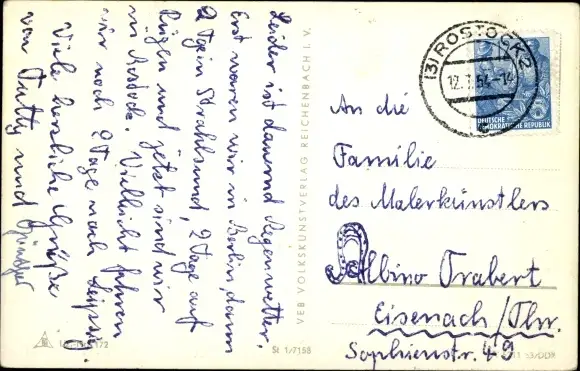 Leider ist dauernd Regenwetter.
Erst waren wir in Berlin, dann
2 Tage in Stralsund, 2 Tage auf
Rügen und jetzt sind wir
in Rostock. Vielleicht fahren
wir noch 2 Tage nach Leipzig.
Viele herzliche Grüße
von Tutty und Günther
VEB VOLKSKUNSTVERLAG REICHENBACH I. V.
(3) ROSTOCK 2
DEUTSCHE
DEMOKRATISCHE REPUBLIK
An die
Familie
des Malerkünstlers
Albino Trabert
Eisenach/Thr.
Sophienstr. 49
St 1/7158